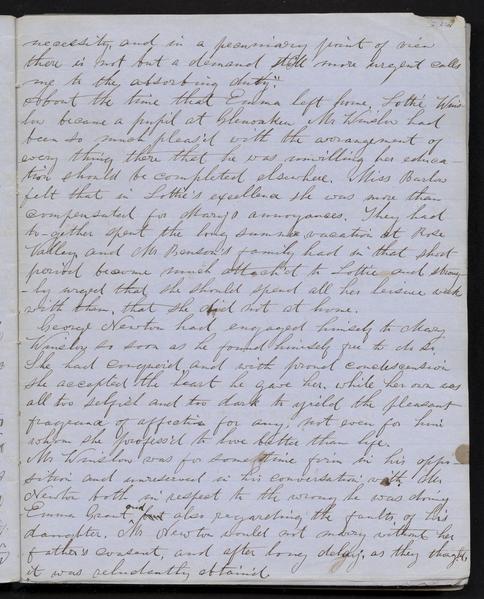 necessity, and in a pecuniary point of view
there is not but a demand still more urgent calls
me to the absorbing duty."
About the time that Emma left home, Lottie Wins-
low became a pupil at Glenoaken Mr Winslow had
been so much pleas'd with the arrangement of
every thing there that he was unwilling her educa-
tion should be completed elsewhere. Miss Barlow
felt that in Lottie's excellence she was more than
compensated for Mary's annoyances. They had
to-gether spent the long summer vacation at Rose
Valley, and Mr Benson's family had in that short
period become much attach'd to Lottie and strong-
-ly urged that she should spend all her leisure week
with them, that she did not at home.
George Newton had engaged himself to Mary
Winslow so soon as he found himself free to do so.
She had conquer'd and with proud condescension
she accepted the heart he gave her, while her own was
all too selfish and too dark to yield the pleasant
fragrance of affection for any, not even for him
whom she profess'd to love better than life.
Mr Winslow was for some time firm in his oppo-
sition and unreserved in his conversation with Mr
Newton both in respect to the wrong he was doing
Emma Grant and also regarding the faults of his
daughter. Mr Newton would not marry without her
father's consent, and after long delay, as they thought,
it was reluctantly obtain'd.